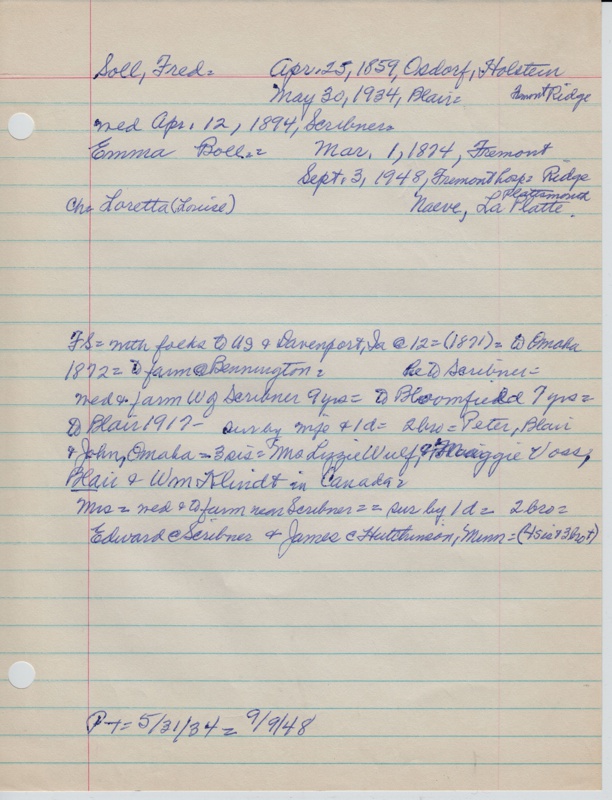 Soll, Fred = Apr. 25, 1859, Osdorf, Holstein
May 30, 1934, Blair = Fremont Ridge
wed Apr. 12, 1894, Scribner =
Emma Boll = = Mar. 1, 1874, Fremont
Sept. 3, 1948, Fremont hosp = Ridge
Plattsmouth
Ch = Loretta (Louise) Naeve, La Platte.
FS = with folks to US & Davenport, Ia @ 12 = (1871) = to Omaha
1872 = to farm @ Bennington = to Scribner =
wed & farm W of Scribner 9 yrs = to Bloomfield 7 yrs =
to Blair 1917 - sur by wife & 1d = 2 bro = Peter, Blair
& John, Omaha = 3 sis = Mrs Lizzie Wulf, & Maggie Voss,
Blair & Wm Klindt in Canada =
Mrs = wed & to farm near Scribner = = sur by 1d = 2 bro =
Edward c Scribner & James c Hutchinson, Minn = (4 sis & 3 bro +)
P-T = 5/31/34 = 9/9/48